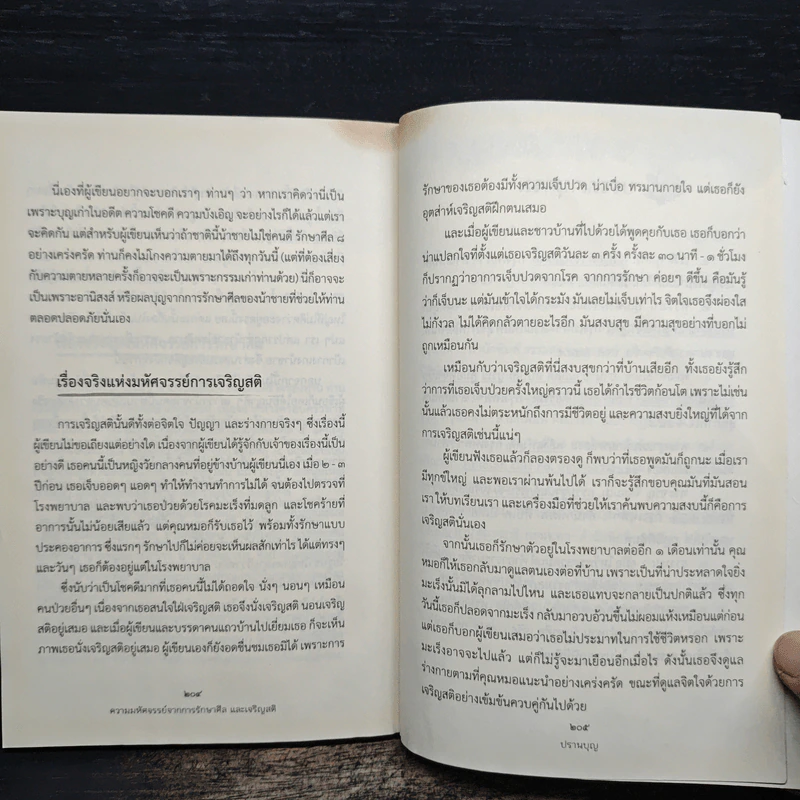 นี่เองที่ผู้เขียนอยากจะบอกเราๆ ท่านๆ ว่า หากเราคิดว่านี่เป็น
เพราะบุญเก่าในอดีต ความโชคดี ความบังเอิญ จะอย่างไรก็ได้แล้วแต่เรา
จะคิดกัน แต่สำหรับผู้เขียนเห็นว่าถ้าชาตินี้น้าชายไม่ใช่คนดี รักษาศีล ๘
อย่างเคร่งครัด ท่านก็คงไม่โกงความตายมาได้ถึงทุกวันนี้ (แต่ที่ต้องเสี่ยง
กับความตายหลายครั้งก็อาจจะเป็นเพราะกรรมเก่าท่านด้วย) นี่ก็อาจจะ
เป็นเพราะอานิสงส์ หรือผลบุญจากการรักษาศีลของน้าชายที่ช่วยให้ท่าน
ตลอดปลอดภัยนั่นเอง
เรื่องจริงแห่งมหัศจรรย์การเจริญสติ
การเจริญสตินั้นดีทั้งต่อจิตใจ ปัญญา และร่างกายจริงๆ ซึ่งเรื่องนี้
ผู้เขียนไม่ขอเถียงแต่อย่างใด เนื่องจากผู้เขียนได้รู้จักกับเจ้าของเรื่องนี้เป็น
อย่างดี เธอคนนี้เป็นหญิงวัยกลางคนที่อยู่ข้างบ้านผู้เขียนนี่เอง เมื่อ ๒ - ๓
ปีก่อน เธอเจ็บออดๆ แอดๆ ทำให้ทำงานทำการไม่ได้ จนต้องไปตรวจที่
โรงพยาบาล และพบว่าเธอป่วยด้วยโรคมะเร็งที่มดลูก และโชคร้ายที่
อาการนั้นไม่น้อยเสียแล้ว แต่คุณหมอก็รับเธอไว้ พร้อมทั้งรักษาแบบ
ประคองอาการ ซึ่งแรกๆ รักษาไปก็ไม่ค่อยจะเห็นผลสักเท่าไร ได้แต่ทรงๆ
และวันๆ เธอก็ต้องอยู่แต่ในโรงพยาบาล
ซึ่งนับว่าเป็นโชคดีมากที่เธอคนนี้ไม่ได้ถอดใจ นั่งๆ นอนๆ เหมือน
คนป่วยอื่นๆ เนื่องจากเธอสนใจใฝ่เจริญสติ เธอจึงนั่งเจริญสติ นอนเจริญ
สติอยู่เสมอ และเมื่อผู้เขียนและบรรดาคนแถวบ้านไปเยี่ยมเธอ ก็จะเห็น
ภาพเธอนั่งเจริญสติอยู่เสมอ ผู้เขียนเองก็ยังอดชื่นชมเธอมิได้ เพราะการ
๒๐๔
ความมหัศจรรย์จากการรักษาศีล และเจริญสติ
รักษาของเธอต้องมีทั้งความเจ็บปวด น่าเบื่อ ทรมานกายใจ แต่เธอก็ยัง
อุตส่าห์เจริญสติฝึกตนเสมอ
และเมื่อผู้เขียนและชาวบ้านที่ไปด้วยได้พูดคุยกับเธอ เธอก็บอกว่า
น่าแปลกใจที่ตั้งแต่เธอเจริญสติวันละ ๓ ครั้ง ครั้งละ ๓๐ นาที - ๑ ชั่วโมง
ก็ปรากฏว่าอาการเจ็บปวดจากโรค จากการรักษา ค่อยๆ ดีขึ้น คือมันรู้
ว่าก็เจ็บนะ แต่มันเข้าใจได้กระมัง มันเลยไม่เจ็บเท่าไร จิตใจเธอจึงผ่องใส
ไม่กังวล ไม่ได้คิดกลัวตายอะไรอีก มันสงบสุข มีความสุขอย่างที่บอกไม่
ถูกเหมือนกัน
เหมือนกับว่าเจริญสติที่นี่สงบสุขกว่าที่บ้านเสียอีก ทั้งเธอยังรู้สึก
ว่าการที่เธอเจ็บป่วยครั้งใหญ่คราวนี้ เธอได้กำไรชีวิตก้อนโต เพราะไม่เช่น
นั้นแล้วเธอคงไม่ตระหนักถึงการมีชีวิตอยู่ และความสงบยิ่งใหญ่ที่ได้จาก
การเจริญสติเช่นนี้แน่ๆ
ผู้เขียนฟังเธอแล้วก็ลองตรองดู ก็พบว่าที่เธอพูดมันก็ถูกนะ เมื่อเรา
มีทุกข์ใหญ่ และพอเราผ่านพ้นไปได้ เราก็จะรู้สึกขอบคุณมันที่มันสอน
เรา ให้บทเรียนเรา และเครื่องมือที่ช่วยให้เราค้นพบความสงบนี้ก็คือการ
เจริญสตินั่นเอง
จากนั้นเธอก็รักษาตัวอยู่ในโรงพยาบาลต่ออีก ๑ เดือนเท่านั้น คุณ
หมอก็ให้เธอกลับมาดูแลตนเองต่อที่บ้าน เพราะเป็นที่น่าประหลาดใจยิ่ง
มะเร็งนั้นมิได้ลุกลามไปไหน และเธอแทบจะกลายเป็นปกติแล้ว ซึ่งทุก
วันนี้เธอก็ปลอดจากมะเร็ง กลับมาอวบอ้วนขึ้นไม่ผอมแห้งเหมือนแต่ก่อน
แต่เธอก็บอกผู้เขียนเสมอว่าเธอไม่ประมาทในการใช้ชีวิตหรอก เพราะ
มะเร็งอาจจะไปแล้ว แต่ก็ไม่รู้จะมาเยือนอีกเมื่อไร ดังนั้นเธอจึงดูแล
ร่างกายตามที่คุณหมอแนะนำอย่างเคร่งครัด ขณะที่ดูแลจิตใจด้วยการ
เจริญสติอย่างเข้มข้นควบคู่กันไปด้วย
๒๐๕
ปรานบุญ